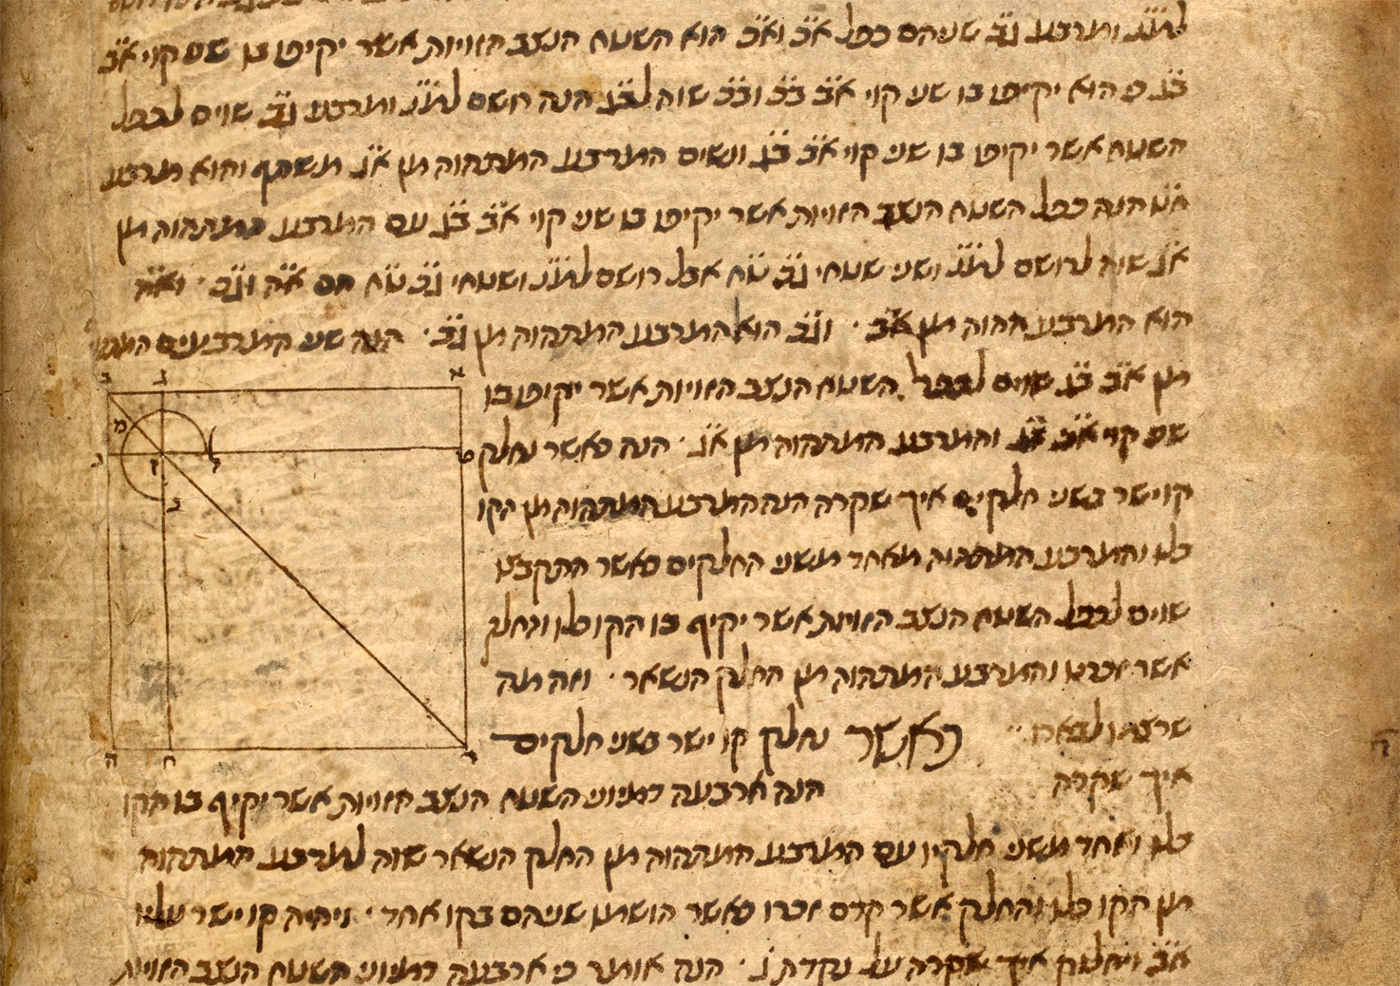 למ̈נ̈ ומרבע ג̈ב̈ שניהם ככפל א̈ב̈ וא̈ב̈ הוא השטח הנצב הזויות אשר יקיפו בו שני קוי א̈ב̈
ב̈ג̈ כי הוא יקיפו בו שני קוי א̈ב̈ ב̈ב̈ וב̈ב̈ שוה לב̈ג̈ הנה רושם למ̈נ̈ ומרבע ג̈ב̈ שוים לככפל
השטח אשר יקיפו בו שני קוי א̈ב̈ ב̈ג̈ ונשים המרבע המתהוה מן א̈ג̈ משותף והוא מרבע
הנה ככפל השטח הנצב הזויות אשר יקיפו בו שני קוי א̈ב̈ ב̈ג̈ עם המרבע המתהוה מן
א̈ג̈ שוה לרושם ושני שטחי ג̈ב̈ ט̈ח̈ אבל רושם ושטחי ג̈ב̈ ט̈ח̈ הם א̈ה̈ וג̈ב̈ · וא̈ה̈
הוא המרבע ההוה מן א̈ב̈ · וג̈ב̈ הוא המרבע המתהוה מן ג̈ב̈ · הנה שני המרבעים
מן א̈ב̈ ב̈ג̈ שוים לככפל השטח הנצב הזויות אשר יקיפו בו
שני קוי א̈ב̈ ב̈ג̈ והמרבע המתהוה מן א̈ג̈ · הנה כאשר נחלק
קו ישר בשני חלקים איך שקרה הנה המרבע המתהוה מן הקו
כלו והמרבע המתהוה מאחד משני החלקים כאשר התקבצו
שוים לככפל השטח הנצב הזויות אשר יקיף בו הקו כלו והחלק
אשר זכרנו והמרבע המתהוה מן החלק הנשאר · וזה מה
שרצינו לבאר
כאשר נחלק קו ישר בשני חלקים
איך שקרה הנה ארבעה דמיוני השטח הנצב הזויות אשר יקיף בו הקו
כלו ואחד משני חלקיו עם המרבע המתהוה מן החלק הנשאר שוה למרבע המתהוה
מן הקו כלו והחלק אשר קדם זכרו כאשר הושמו שניהם בקו אחד · ויהיה קו ישר עליו
א̈ב̈ ויחלק איך שקרה על נקדת ג̈ · הנה אומר כי ארבעה דמיוני השטח הנצב הזויות